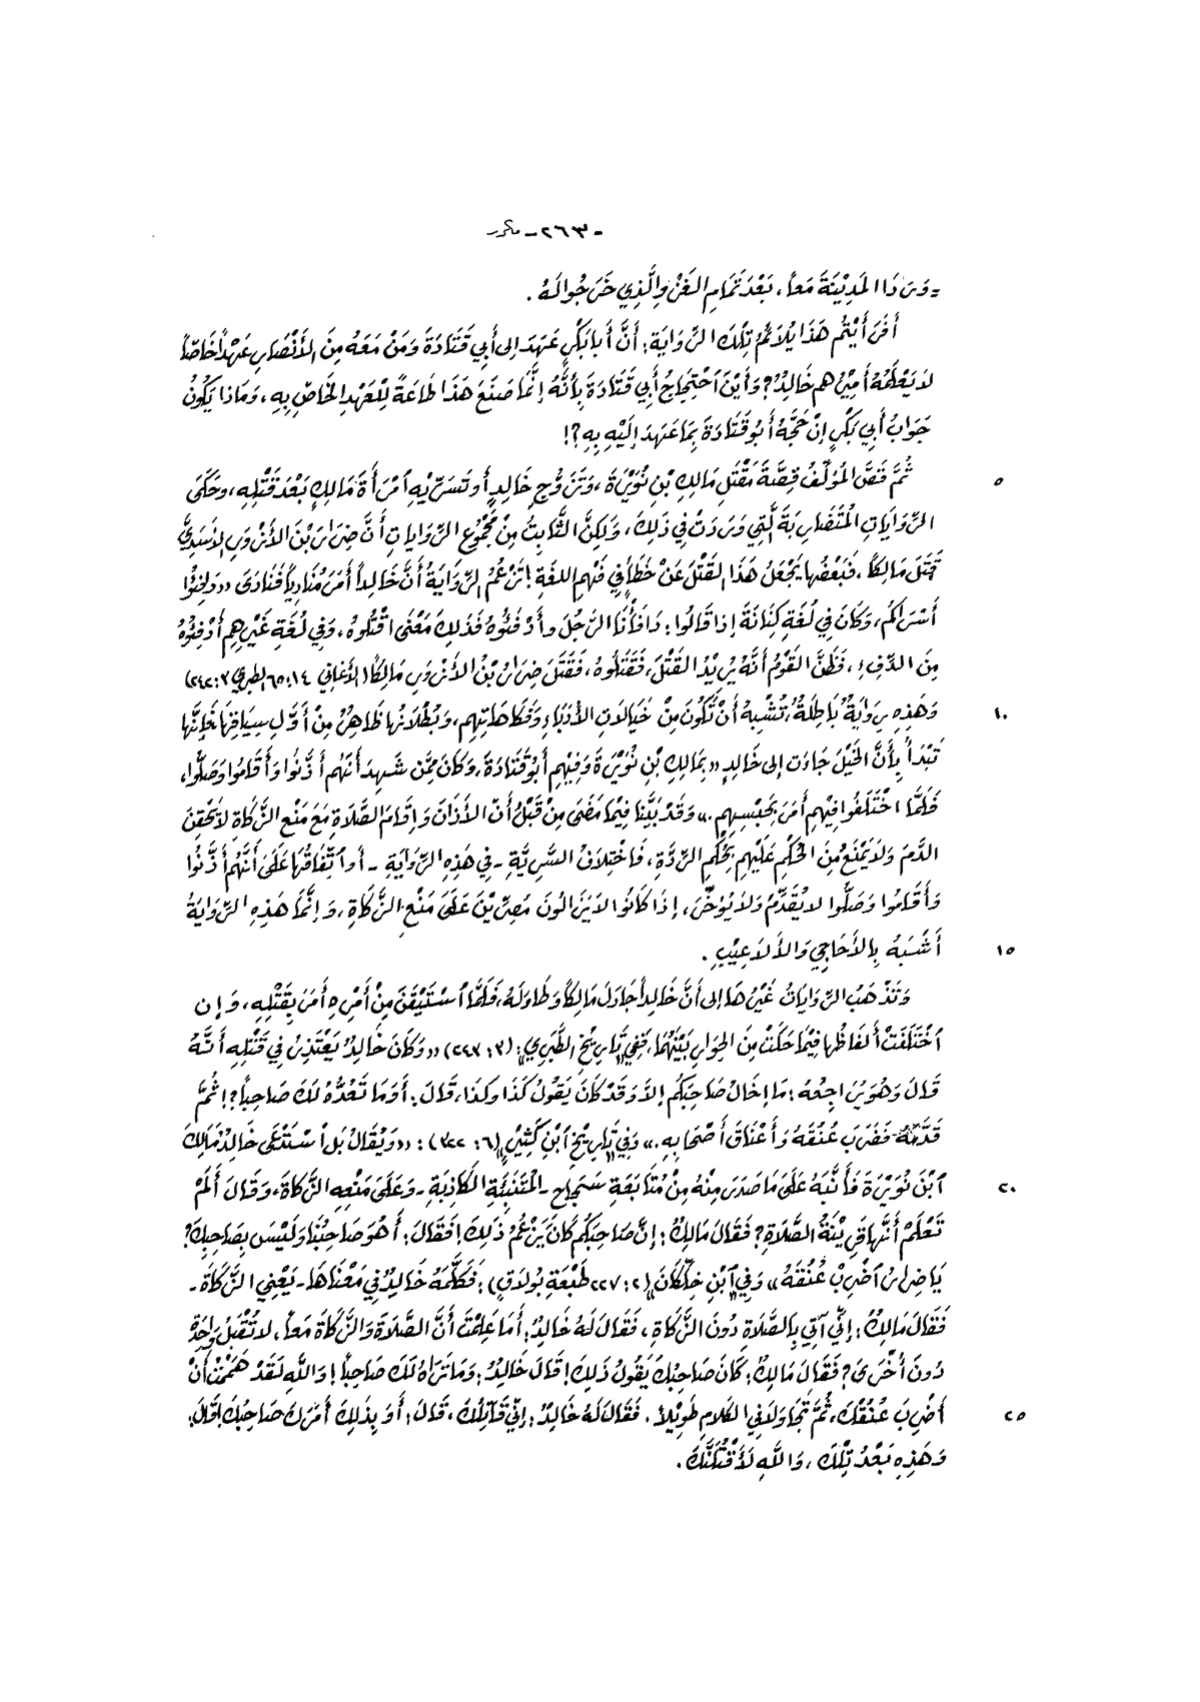 - ٢٦٣ - مكرر
= وَرَدَا المَدِيْنَةَ مَعاً، بَعْدَ تَمَامِ الغَزْوِ الَّذِي خَرَجُوا لَهُ .
أَفَرَأَيْتُم هَذَا يُلَائِمُ تِلْكَ الرِّوَايَةَ: أَنَّ أَبا بَكْرٍ عَهِدَ إِلى أَبي قَتَادَةَ وَمَنْ مَعَهُ مِنَ الأَنْصَارِ عَهْداً خَاصّاً
لَا يَعْلَمُهُ أَمِيْرُهم خَالِدٌ؟ وَأَيْنَ احْتِجَاجُ أَبي قَتَادَةَ بِأَنَّهُ إِنَّمَا صَنَعَ هَذَا طَاعَةً لِلْعَهْدِ الخَاصِّ بِهِ، وَمَاذا يَكُونُ
جَوَابُ أَبي بَكْرٍ إِنْ حَجَّهُ أَبُو قَتَادَةَ بِمَا عَهِدَ إِلَيْهِ بِهِ؟!
٥ ثُمَّ قَصَّ المُؤَلِّفُ قِصَّةَ مَقْتَلِ مَالِكِ بْنِ نُوَيْرَةَ، وَتَزَوُّجِ خَالِدٍ أَو تَسَرِّيْهِ امْرَأَةَ مَالِكٍ بَعْدَ قَتْلِهِ، وحَكَى
الرِّوَايَاتِ المُتَضَارِبَةَ الَّتِي وَرَدَتْ فِي ذَلِكَ، وَلَكِنَّ الثَّابِتُ مِنْ مَجْمُوعِ الرِّوَايَاتِ أَنَّ ضِرَارَ بْنَ الأَزْوَرِ الأَسَدِيَّ
قَتَلَ مَالِكاً، فَبَعْضُها يَجْعَلُ هَذَا القَتْلَ عَنْ خَطَأٍ فِي فَهْمِ اللغَةِ! تَزْعُمُ الرِّوَايَةُ أَنَّ خَالِداً أَمَرَ مُنَادِياً فَنَادَى «دَافِئُوا
أَسْرَاكُم، وَكَانَ فِي لُغَةِ كِنَانَةَ إِذا قَالُوا: دَافَأْنَا الرَّجُلَ وأَدْفَئُوهُ فَذَلِكَ مَعْنَى اقْتُلُوهُ، وَفِي لُغَةِ غَيْرِهِم أَدْفِئُوهُ
مِنَ الدِّفْءِ، فَظَنَّ القَوْمُ أَنَّهُ يُرِيْدُ القَتْلَ، فَقَتَلُوهُ، فَقَتَلَ ضِرَارُ بْنُ الأَزْوَرِ مَالِكاً (الأغاني ١٤ : ٦٥ الطبري ٣ : ٢٤٢)
١٠ وَهَذِهِ رِوَايَةٌ بَاطِلَةٌ، تُشْبِهُ أَنْ تَكُونَ مِنْ خَيَالَاتِ الأُدَبَاءِ وَفُكَاهَاتِهِم، وَبُطْلَانُها ظَاهِرٌ مِنْ أَوَّلِ سِيَاقِهَا فَإِنَّها
تَبْدَأُ بِأَنَّ الخَيْلَ جَاءَت إِلى خَالِدٍ «بِمَالِكِ بْنِ نُوَيْرَةَ وَفِيْهِم أَبُو قَتَادَةَ، وَكَانَ مِمَّن شَهِدَ أَنَّهُم أَذَّنُوا وَأَقَامُوا وَصَلُّوا،
فَلَمَّا اخْتَلَفُوا فِيْهِم أَمَرَ بِحَبْسِهِم.» وَقَدْ بَيَّنَّا فِيْمَا مَضَى مِنْ قَبْلُ أَنَّ الأَذَانَ وَإِقَامَ الصَّلَاةِ مَعَ مَنْعِ الزَّكَاةِ لَا يَحْقِنُ
الدَّمَ وَلَا يَمْنَعُ مِنَ الحُكْمِ عَلَيْهِم بِحُكْمِ الرِّدَّةِ، فَاخْتِلَافُ السَّرِيَّةِ - فِي هَذِهِ الرِّوَايَةِ - أَو اتِّفَاقُهَا عَلَى أَنَّهُم أَذَّنُوا
وَأَقَامُوا وَصَلُّوا لا يُقَدِّمُ وَلَا يُؤَخِّرُ، إِذَا كَانُوا لَا يَزَالُونَ مُصِرِّيْنَ عَلَى مَنْعِ الزَّكَاةِ، وَإِنَّمَا هَذِهِ الرِّوَايَةُ
١٥ أَشْبَهُ بِالأَحَاجِي وَالأَلَاعِيْبِ .
وَتَذْهَبُ الرِّوَايَاتُ غَيْرُهَا إِلى أَنَّ خَالِداً جَاوَلَ مَالِكاً وَطَاوَلَهُ، فَلَمَّا اسْتَيْقَنَ مِنْ أَمْرِهِ أَمَرَ بِقَتْلِهِ، وَإِن
اخْتَلَفَتْ أَلفَاظُها فِيْمَا حَكَتْ مِنَ الحِوَارِ بَيْنَهُمَا، فَفِي "تَارِيْخِ الطَّبَرِيِّ": (٣ : ٢٤٣) «وَكَانَ خَالِدٌ يَعْتَذِرُ فِي قَتْلِهِ أَنَّهُ
قَالَ وَهُوَ يُرَاجِعُهُ: مَا إِخَالُ صَاحِبَكُم إِلَّا وَقَدْ كَانَ يَقُولُ كَذَا وَكَذَا، قَالَ: أَوَمَا تَعُدُّهُ لَكَ صَاحِباً؟! ثُمَّ
قَدَّمَهُ فَضَرَبَ عُنُقَهُ وَأَعْنَاقَ أَصْحَابِهِ.» وَفِي "تَارِيْخِ ابْنِ كَثِيْرٍ" (٦ : ٣٢٢): «وَيُقَالُ بَل اسْتَدْعَى خَالِدٌ مَالِكَ
٢٠ ابْنَ نُوَيْرَةَ فَأَنَّبَهُ عَلَى مَا صَدَرَ مِنْهُ مِنْ مُتَابَعَةِ سَجَاحِ - المُتَنَبِّئَةِ الكَاذِبَةِ - وَعَلَى مَنْعِهِ الزَّكَاةَ، وَقَالَ أَلَمْ
تَعْلَمْ أَنَّها قَرِيْنَةُ الصَّلَاةِ؟ فَقَالَ مَالِكٌ: إِنَّ صَاحِبَكُم كَانَ يَزْعُمُ ذَلِكَ! فَقَالَ: أَهُوَ صَاحِبُنَا وَلَيْسَ بِصَاحِبِكَ؟
يَا ضِرَارُ اضْرِبْ عُنُقَهُ» وَفِي "ابْنِ خِلِّكَانَ" (٢ : ٢٢٧ طَبْعَةِ بُولَاقٍ): فَكَلَّمَهُ خَالِدٌ فِي مَعْنَاهَا - يَعْنِي الزَّكَاةَ -
فَقَالَ مَالِكٌ: إِنِّي آتِي بِالصَّلَاةِ دُونَ الزَّكَاةِ، فَقَالَ لَهُ خَالِدٌ: أَمَا عَلِمْتَ أَنَّ الصَّلَاةَ وَالزَّكَاةَ مَعاً، لا تُقْبَلُ وَاحِدَةٌ
دُونَ أُخْرَى؟ فَقَالَ مَالِكٌ: كَانَ صَاحِبُكَ يَقُولُ ذَلِكَ! قَالَ خَالِدٌ: وَمَا تَرَاهُ لَكَ صَاحِباً! وَاللهِ لَقَدْ هَمَمْتُ أَنْ
٢٥ أَضْرِبَ عُنُقَكَ، ثُمَّ تَجَاوَلَا فِي الكَلَامِ طَوِيْلاً. فَقَالَ لَهُ خَالِدٌ: إِنِّي قَاتِلُكَ، قَالَ: أَوَ بِذَلِكَ أَمَرَكَ صَاحِبُكَ! قَالَ:
وَهَذِهِ بَعْدَ تِلْكَ، وَاللهِ لَأَقْتُلَنَّكَ .